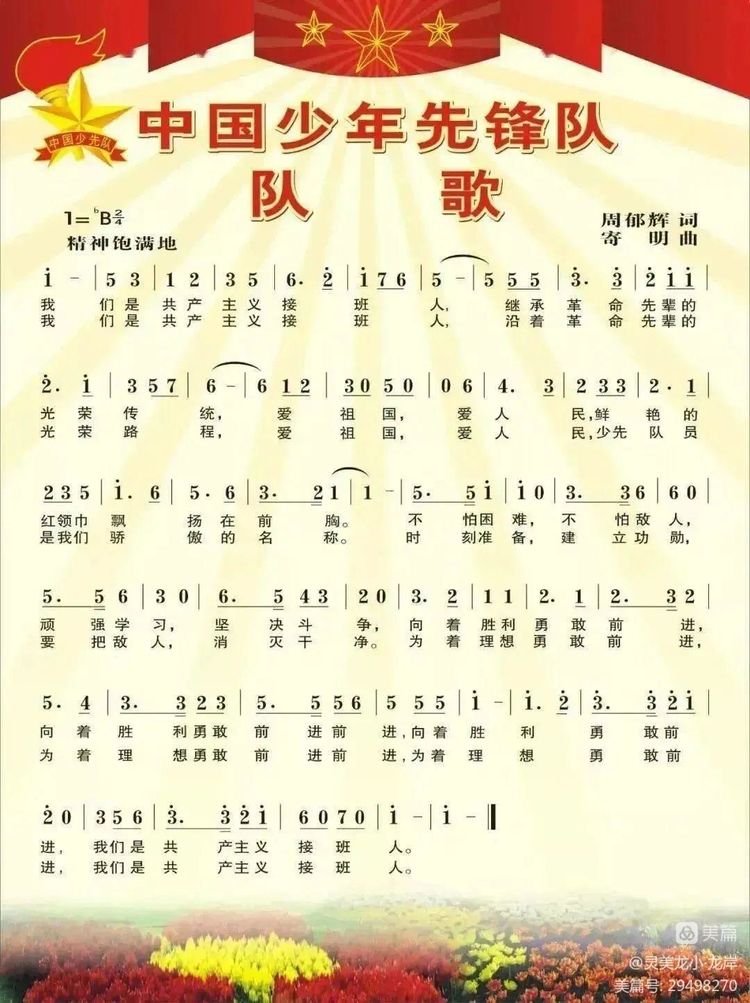 中国少先队
中国少年先锋队
队 歌
1=ᵇB 2/4
周郁辉 词
精神饱满地
寄 明 曲
i - | 5 3 | 1 2 | 3 5 | 6. 2̇ | i 7 6 | 5 - | 5 5 5 | 3̇. 3̇ | 2̇ i i
我 们是 共产 主义 接 班 人, 继承 革 命先辈的
我 们是 共产 主义 接 班 人, 沿着 革 命先辈的
2̇. i | 3 5 7 | 6 - | 6 1 2 | 3 0 5 0 | 0 6 | 4. 3 | 2 3 3 | 2. 1
光 荣 传 统, 爱 祖 国, 爱 人 民,鲜 艳 的
光 荣 路 程, 爱 祖 国, 爱 人 民,少先 队 员
2 3 5 | i. 6 | 5. 6 | 3. 2 1 | 1 - | 5. 5 i | i 0 | 3. 3 6 | 6 0
红领巾 飘 扬 在 前 胸。 不 怕困 难, 不 怕敌 人,
是我们 骄 傲 的 名 称。 时 刻准 备, 建 立功 勋,
5. 5 6 | 3 0 | 6. 5 4 3 | 2 0 | 3. 2 | 1 1 | 2. 2 | 2. 3 2
顽 强学 习, 坚 决斗 争, 向 着 胜利 勇 敢 前 进,
要 把敌 人, 消 灭干 净。 为 着 理想 勇 敢 前 进,
5. 4 | 3. 3 2 3 | 5. 5 5 6 | 5 5 5 | i - | i. 2̇ | 3̇. 3̇ 2̇ i
向 着 胜 利勇敢 前 进前 进,向着 胜 利 勇 敢前
为 着 理 想勇敢 前 进前 进,为着 理 想 勇 敢前
2̇ 0 | 3 5 6 | 3̇. 3̇ 2̇ i | 6 0 7 0 | i - | i - ‖
进, 我们是 共 产主义 接 班 人。
进, 我们是 共 产主义 接 班 人。
美篇
@灵美龙小 龙岸
美篇号: 29498270